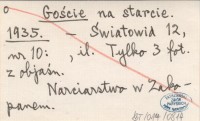 o Goście na starcie.
1935. – Światowid 12,
nr 10: , il. Tylko 3 fot.
z objaśn.
Narciarstwo w Zako-
panem.